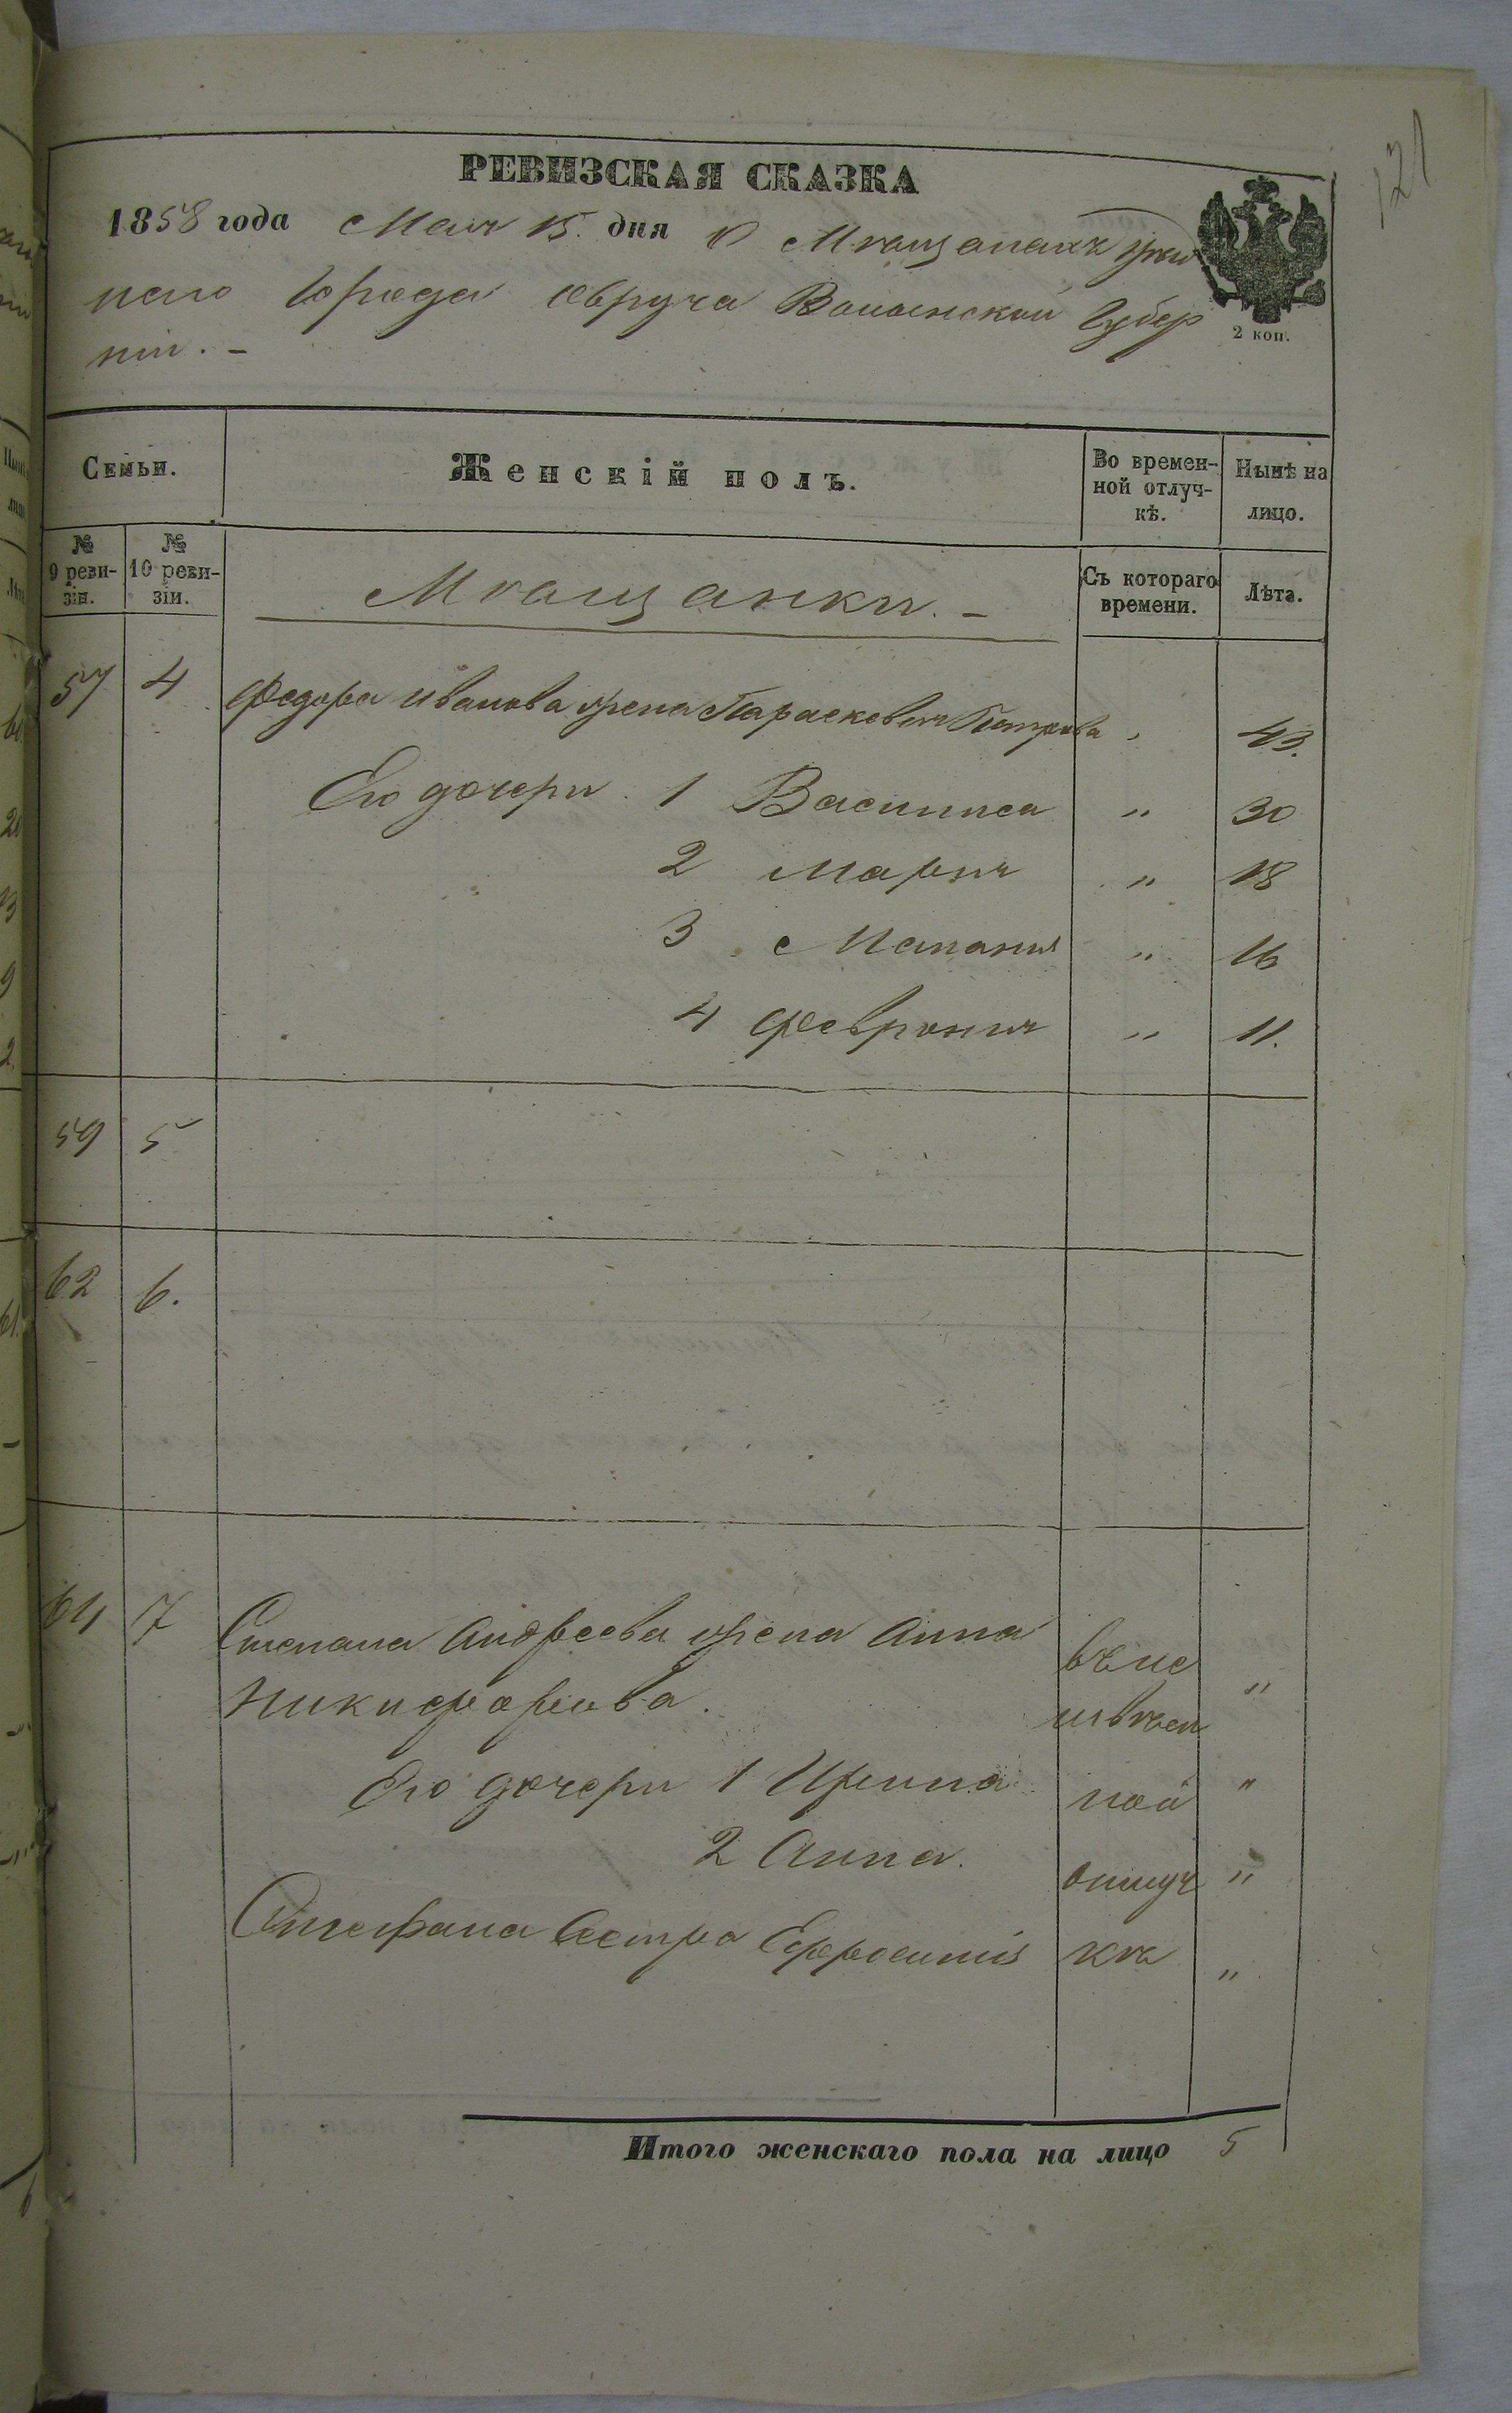 121
РЕВИЗСКАЯ СКАЗКА
1858 года Мая 15. дня О Мѣщанахъ уѣзд
наго Города Овруча Волынской Губер
ніи. –
2 коп.
Семьи.
Женскій полъ.
Во времен-
ной отлуч-
кѣ.
Нынѣ на
лицо.
№
9 реви-
зіи.
№
10 реви-
зіи.
Мѣщанки. –
Съ котораго
времени.
Лѣта.
57 4 Федора Иванова жена Параскевия Петрова „ 43.
Его дочери 1 Василиса „ 30
2 Марія „ 18
3 Меланія „ 16
4 Февронія „ 11.
59 5
62 6.
64 7 Степана Андреева жена Анна въ не
Никифорова. извѣст „
Его дочери 1 Ирина ной „
2 Анна. отлуч „
Стефана Сестра Ефросинія кѣ „
Итого женскаго пола на лицо 5